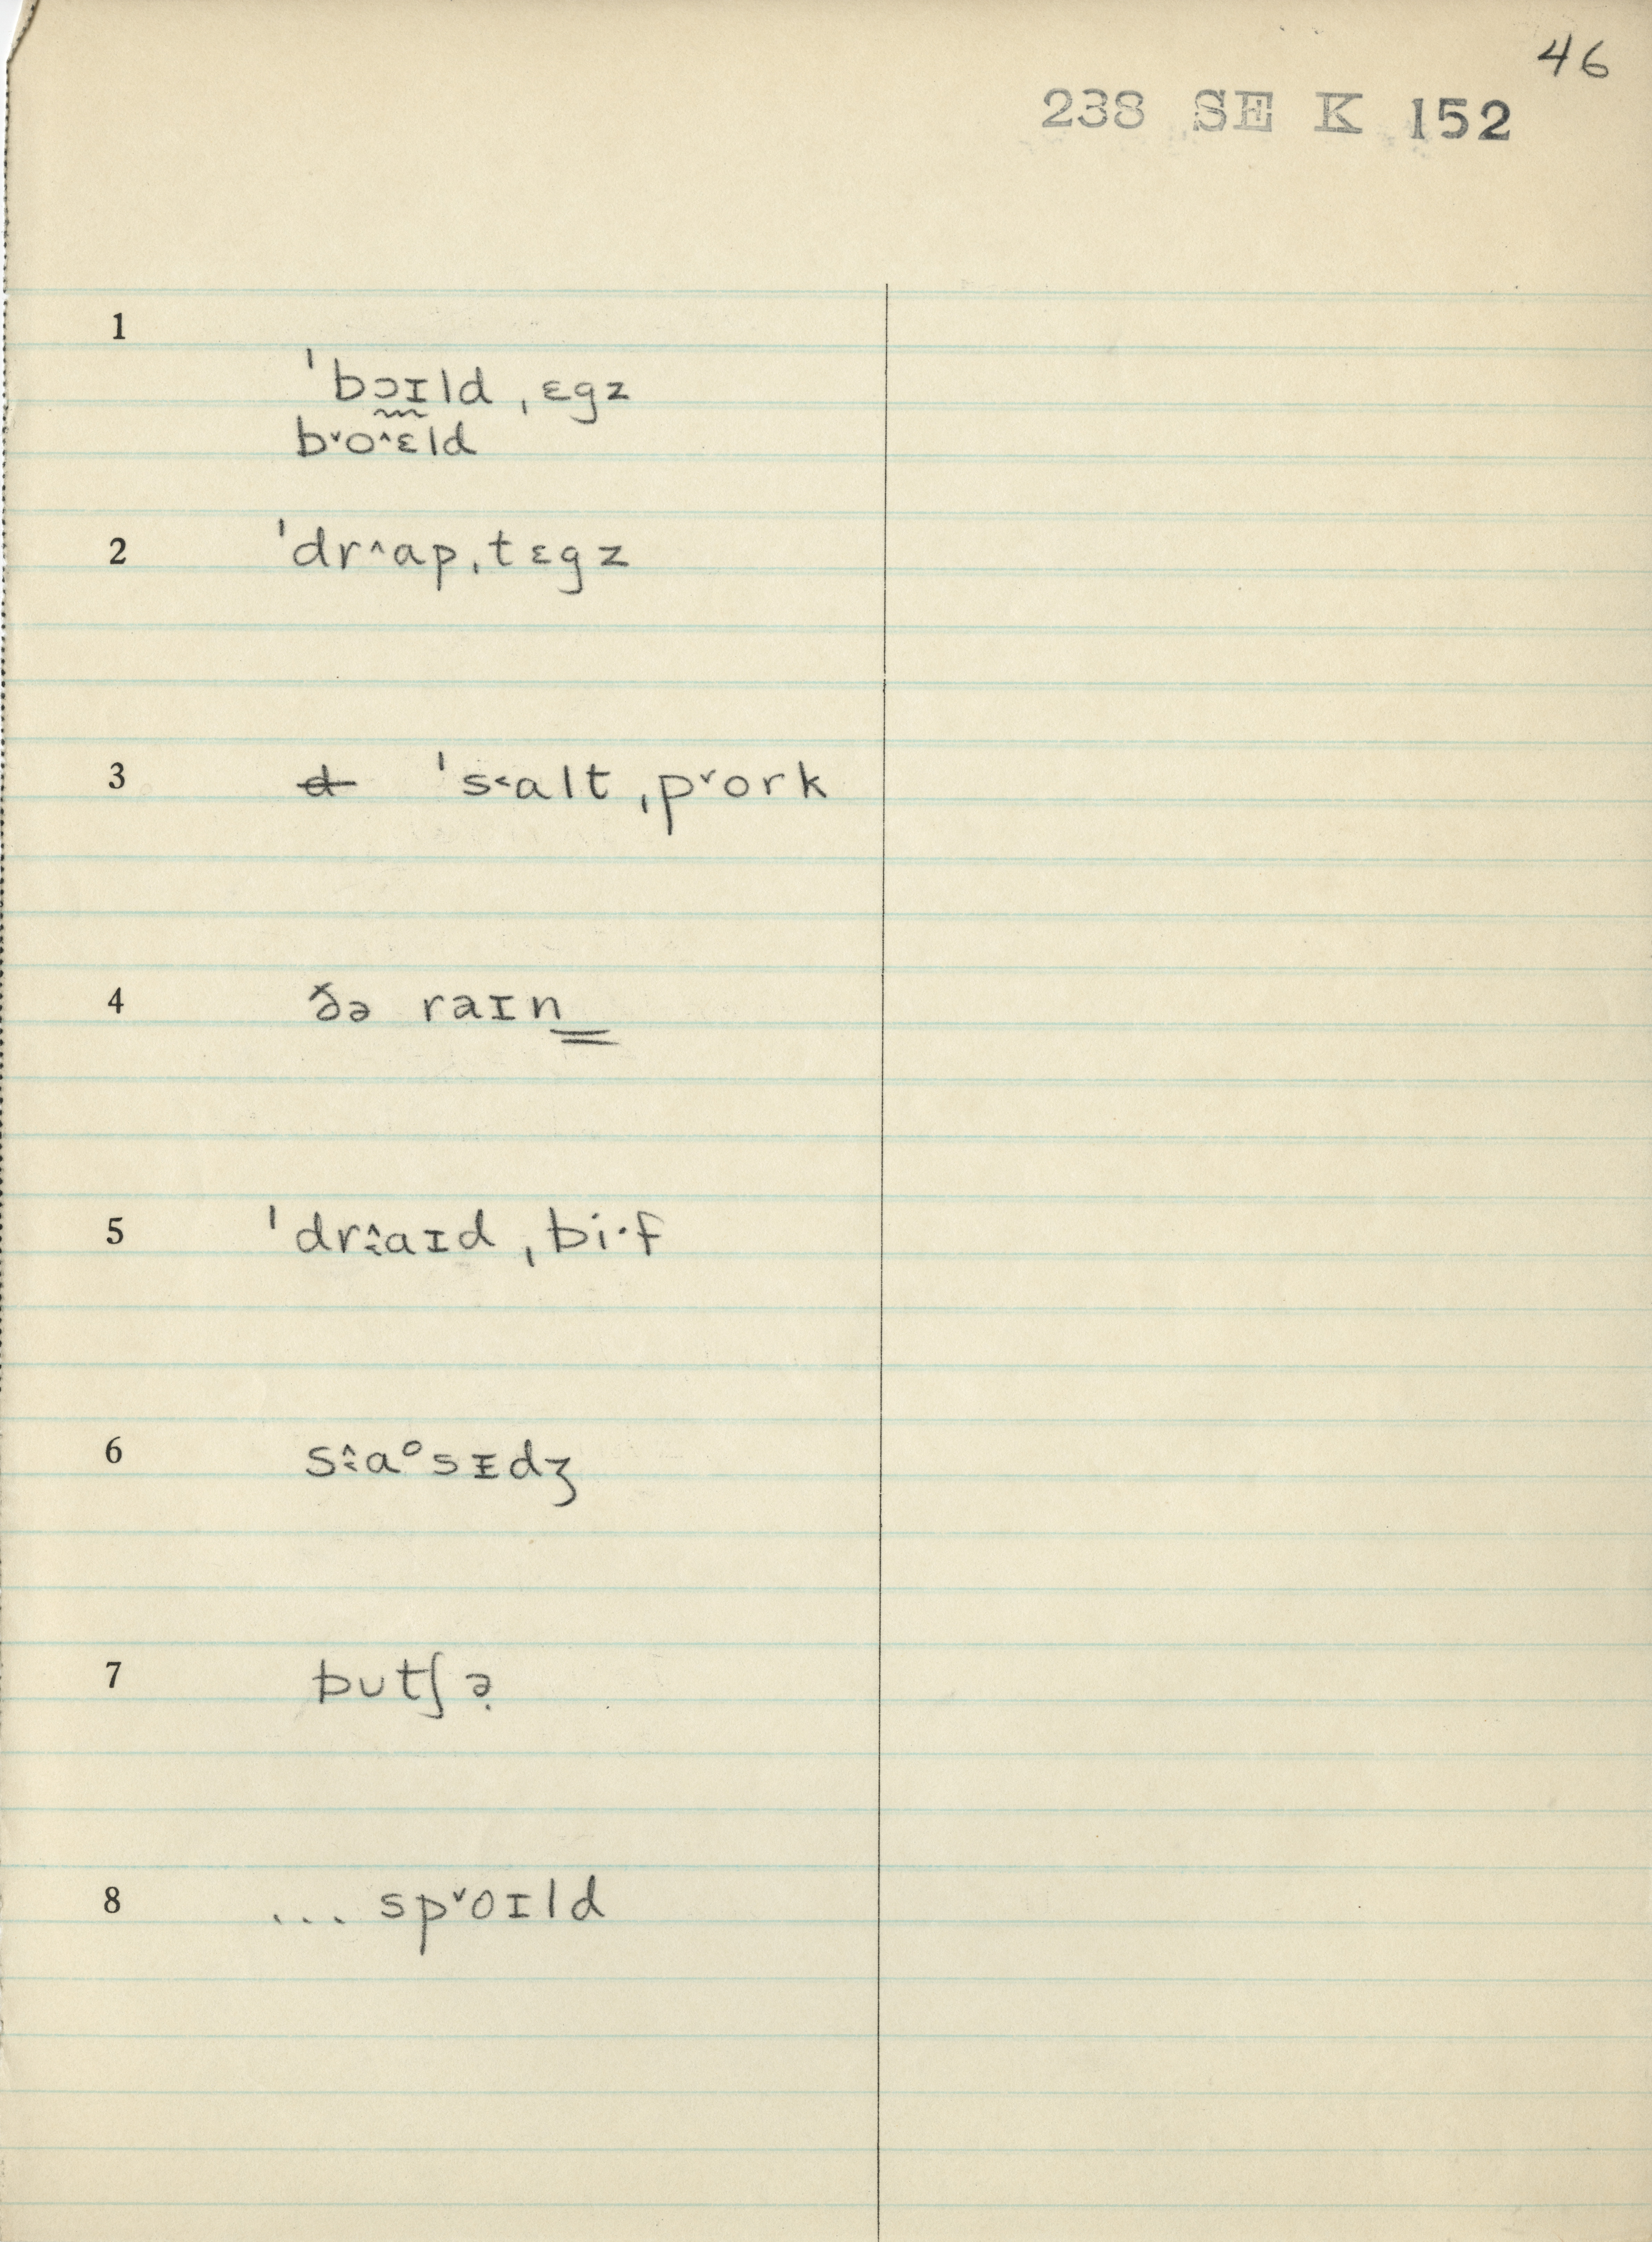 46
238 SE K 152
1
ˈbɔɪld ˌɛgz
b˅o^ɛld
2 ˈdr^ɑpˌtɛgz
3 d ˈs˂ɑlt ˌp˅ork
4 ðə raɪn
5 ˈdr˄˂ɑɪd ˌbi·f
6 s˄˂ɑᵒsɪ̵dʒ
7 bʊtʃə̣
8 ... sp˅oɪld